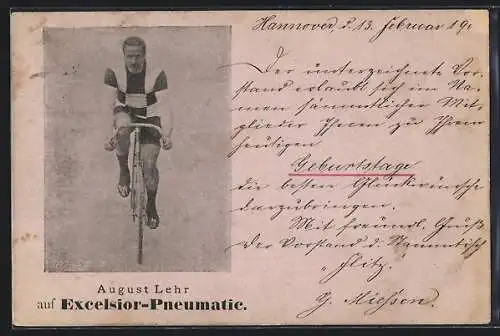 Hannover, d. 13. Februar 19
Der unterzeichnete Vor-
stand erlaubt sich im Na-
men sämmtlicher Mit-
glieder Ihnen zu Ihrem
heutigen
Geburtstage
die besten Glückwünsche
darzubringen.
Mit freundl. Gruß
Der Vorstand d. Stammtisch
"Flitz.
August Lehr
auf Excelsior-Pneumatic.